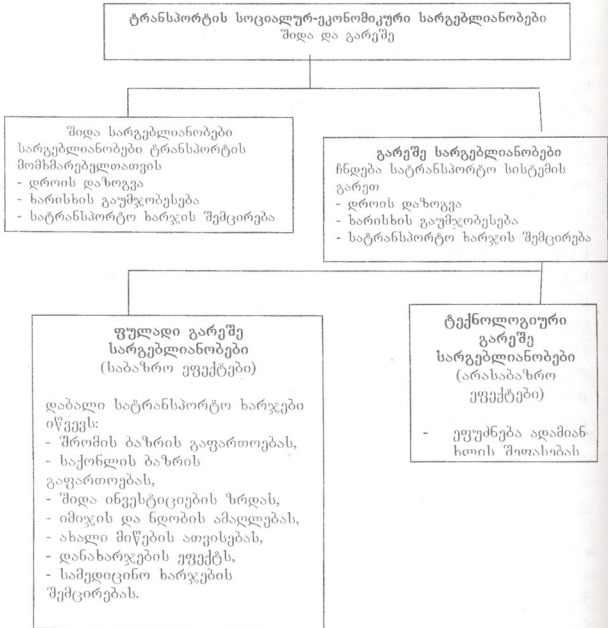 ტრანსპორტის სოციალურ-ეკონომიკური სარგებლიანობები
შიდა და გარეშე
შიდა სარგებლიანობები
სარგებლიანობები ტრანსპორტის
მომხმარებელთათვის
- დროის დაზოგვა
- ხარისხის გაუმჯობესება
- სატრანსპორტო ხარჯის შემცირება
გარეშე სარგებლიანობები
ჩნდება სატრანსპორტო სისტემის
გარეთ
- დროის დაზოგვა
- ხარისხის გაუმჯობესება
- სატრანსპორტო ხარჯის შემცირება
ფულადი გარეშე
სარგებლიანობები
(საბაზრო ეფექტები)
დაბალი სატრანსპორტო ხარჯები
იწვევს:
- შრომის ბაზრის გაფართოებას,
- საქონლის ბაზრის
გაფართოებას,
- შიდა ინვესტიციების ზრდას,
- იმიჯის და ნდობის ამაღლებას,
- ახალი მიწების ათვისებას,
- დანახარჯების ეფექტს,
- სამედიცინო ხარჯების
შემცირებას.
ტექნოლოგიური
გარეშე
სარგებლიანობები
(არასაბაზრო
ეფექტები)
- ეფუძნება ადამიან
ხლის შეფასებას